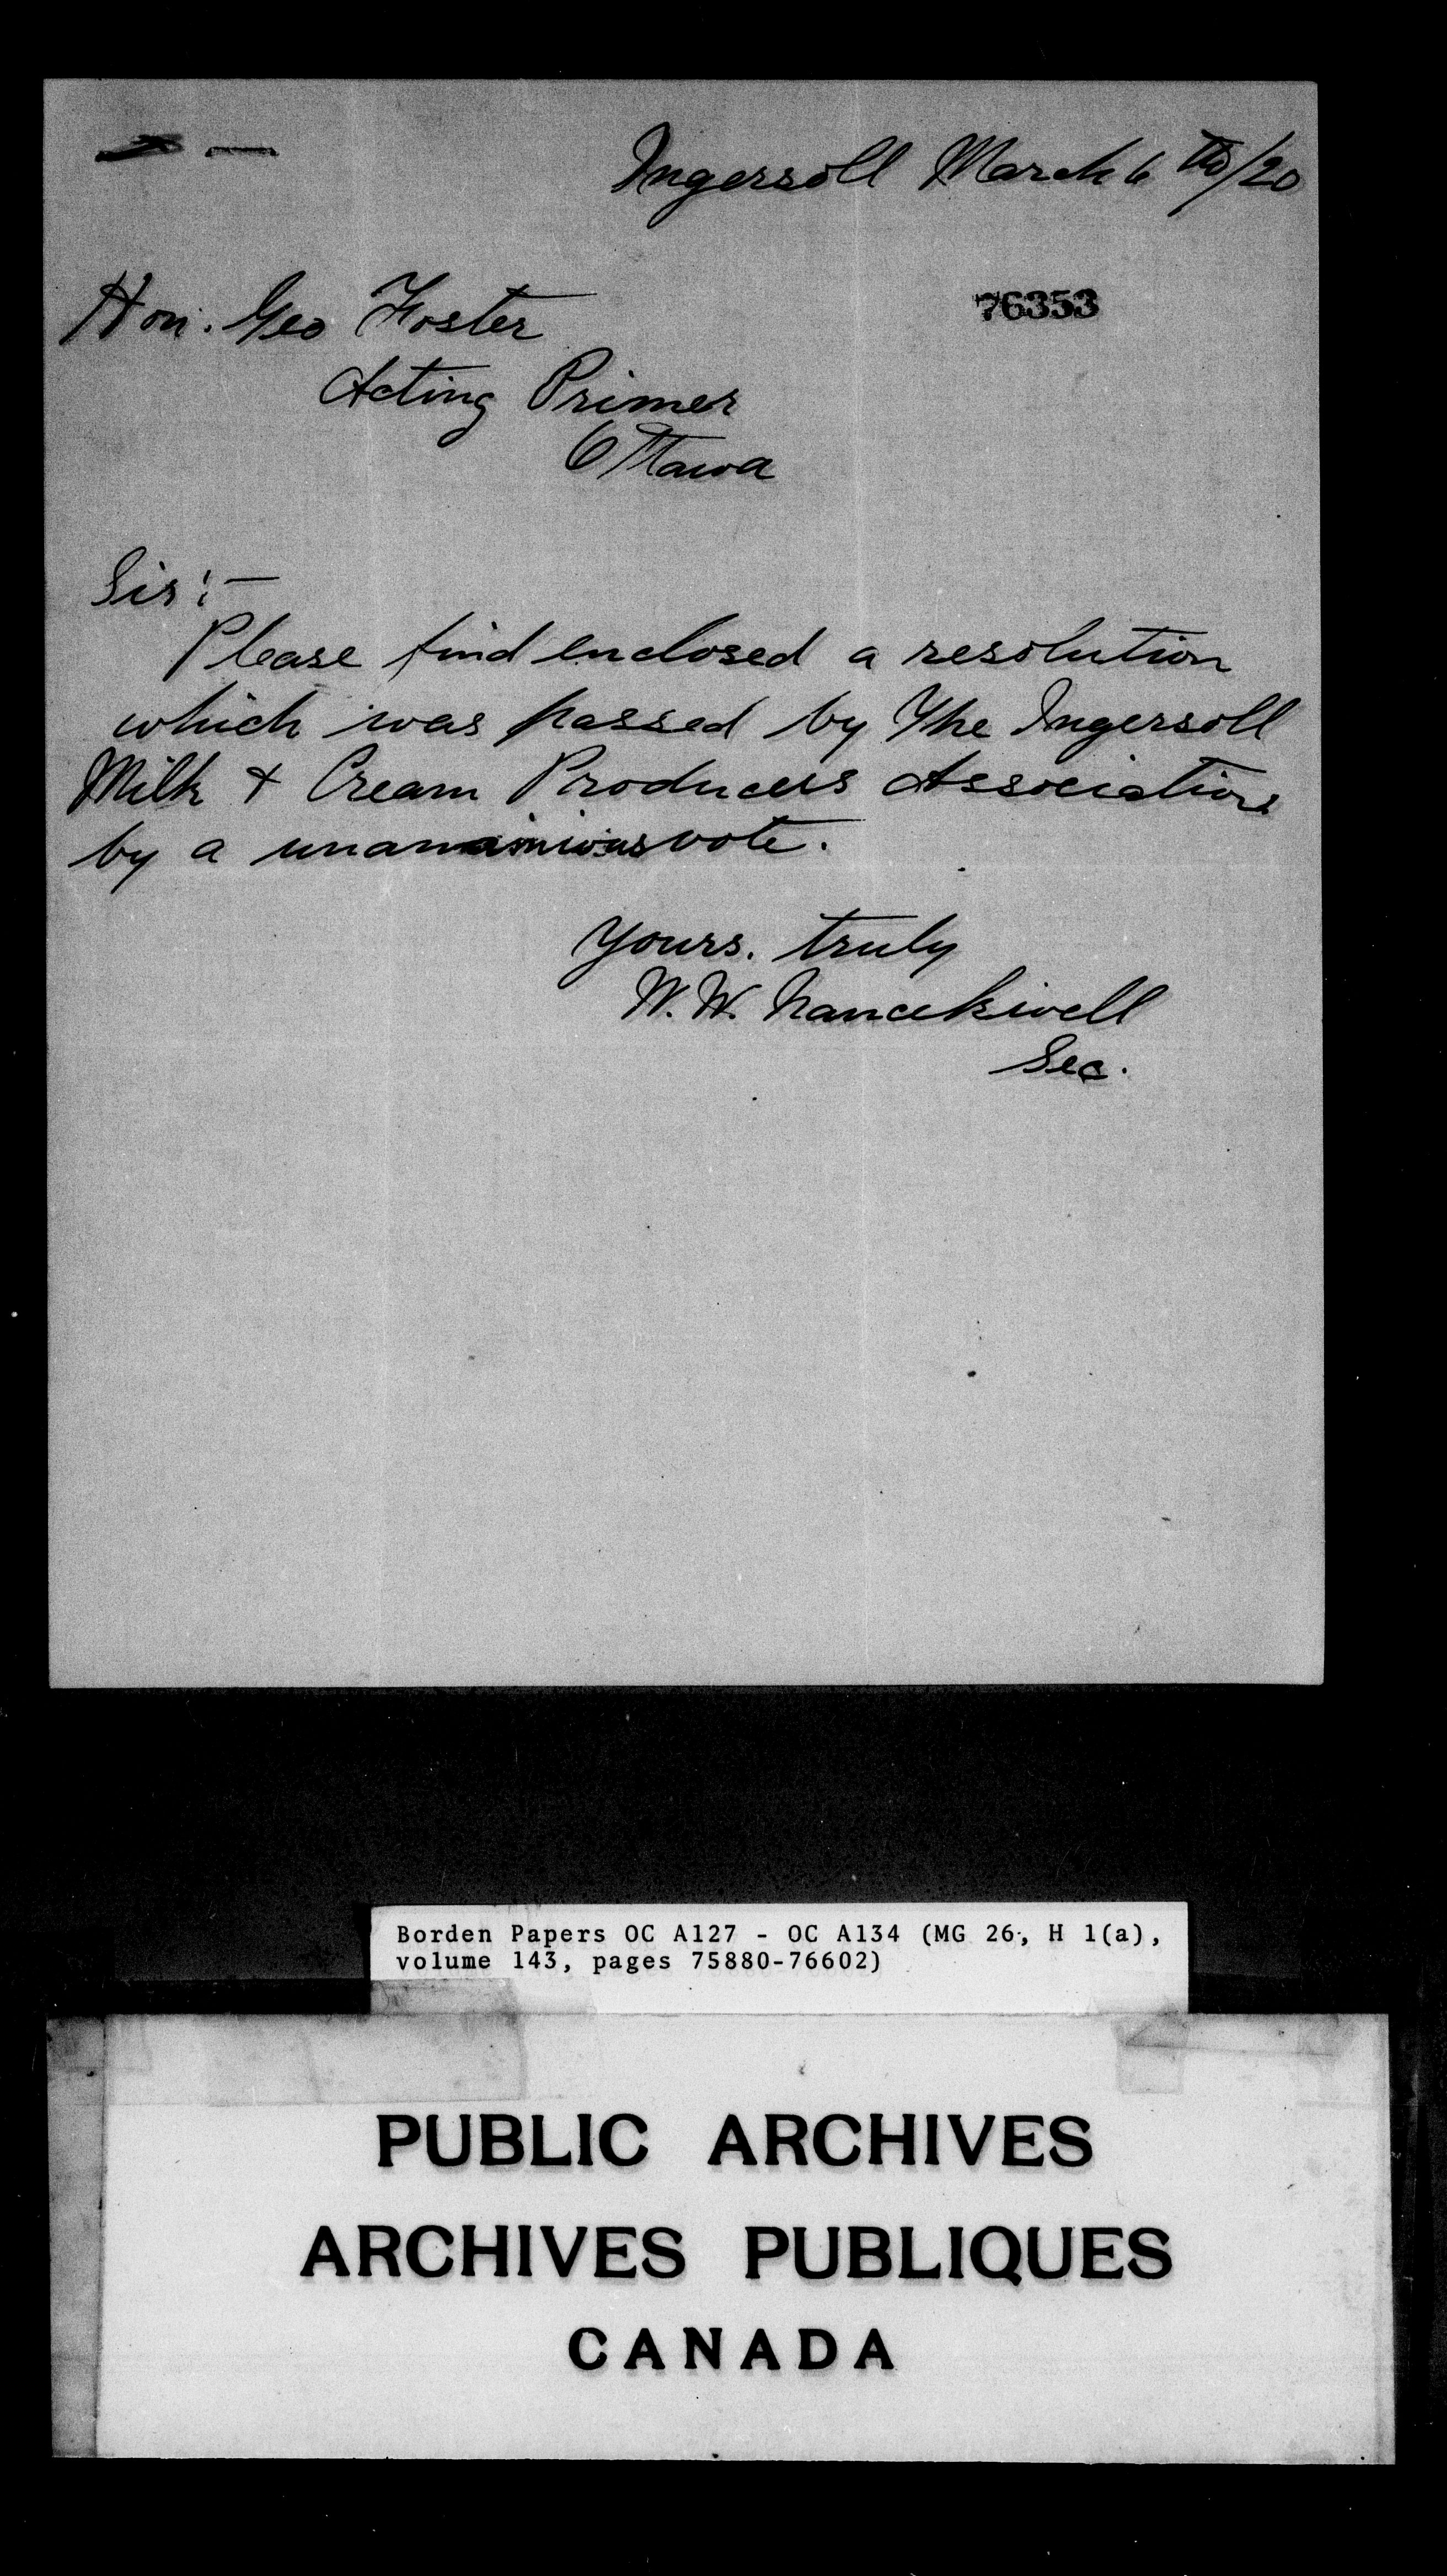 Ingersoll March 6th/20
76353
Hon. Geo Foster
Acting Primer
Ottawa
Sir:-
Please find enclosed a resolution
which was passed by The Ingersoll
Milk & Cream Producers Association
by a vote.
Yours. truly
W. W. Nancekivell
Sec.
Borden Papers OC A127 - OC A134 (MG 26, H 1(a),
volume 143, pages 75880-76602)
PUBLIC ARCHIVES
ARCHIVES PUBLIQUES
CANADA